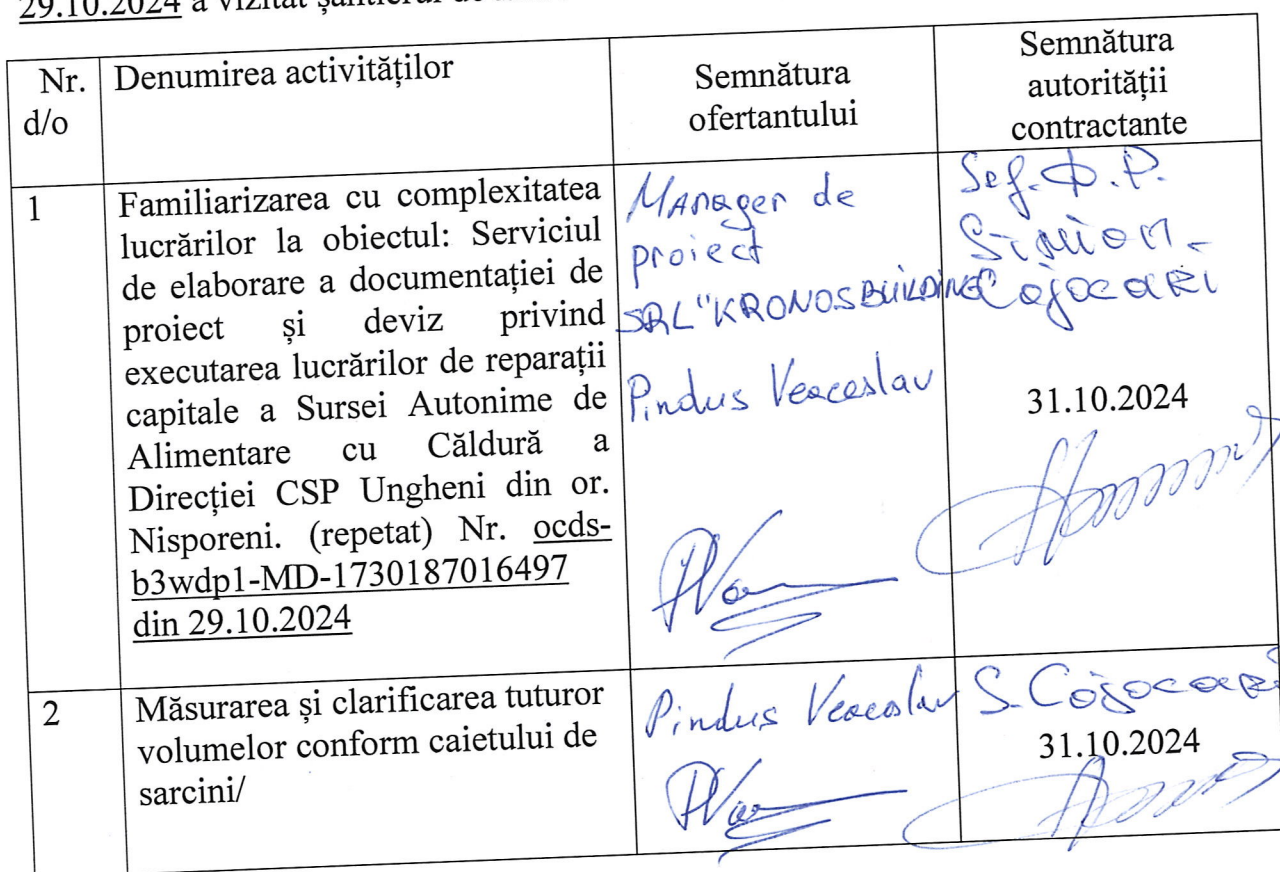 29.10.2024 a vizitat șantierul de
Nr.
d/o
Denumirea activităților
Semnătura
ofertantului
Semnătura
autorității
contractante
1
Familiarizarea cu complexitatea
lucrărilor la obiectul: Serviciul
de elaborare a documentației de
proiect și deviz privind
executarea lucrărilor de reparații
capitale a Sursei Autonime de
Alimentare cu Căldură a
Direcției CSP Ungheni din or.
Nisporeni. (repetat) Nr. ocds-
b3wdp1-MD-1730187016497
din 29.10.2024
Manager de
proiect
SRL "KRONOSBUILDING"
Pindus Veaceslav
Șef. D.P.
Simion
Cojocari
31.10.2024
2
Măsurarea și clarificarea tuturor
volumelor conform caietului de
sarcini/
Pindus Veaceslav
S. Cojocari
31.10.2024